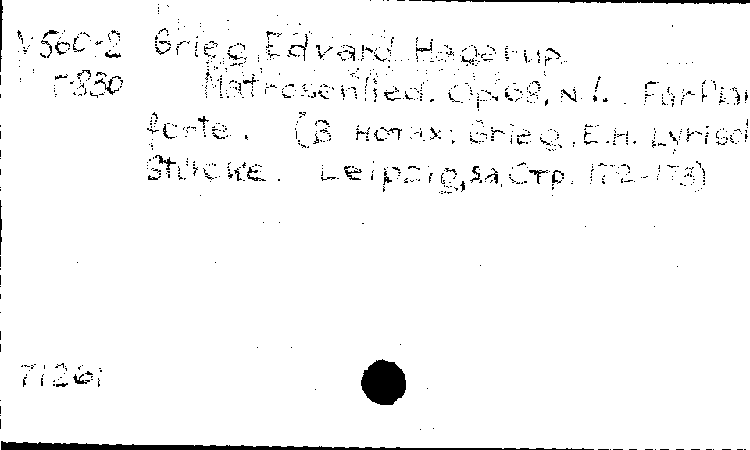 V560-2 Grieg, Edvard Hagerup
Г830 Matrosenlied. Op.68, N 1. Für Pian
forte. (В нотах: Grieg, E.H. Lyrisch
Stücke. Leipzig, s.a, Стр. 172-173)
71261